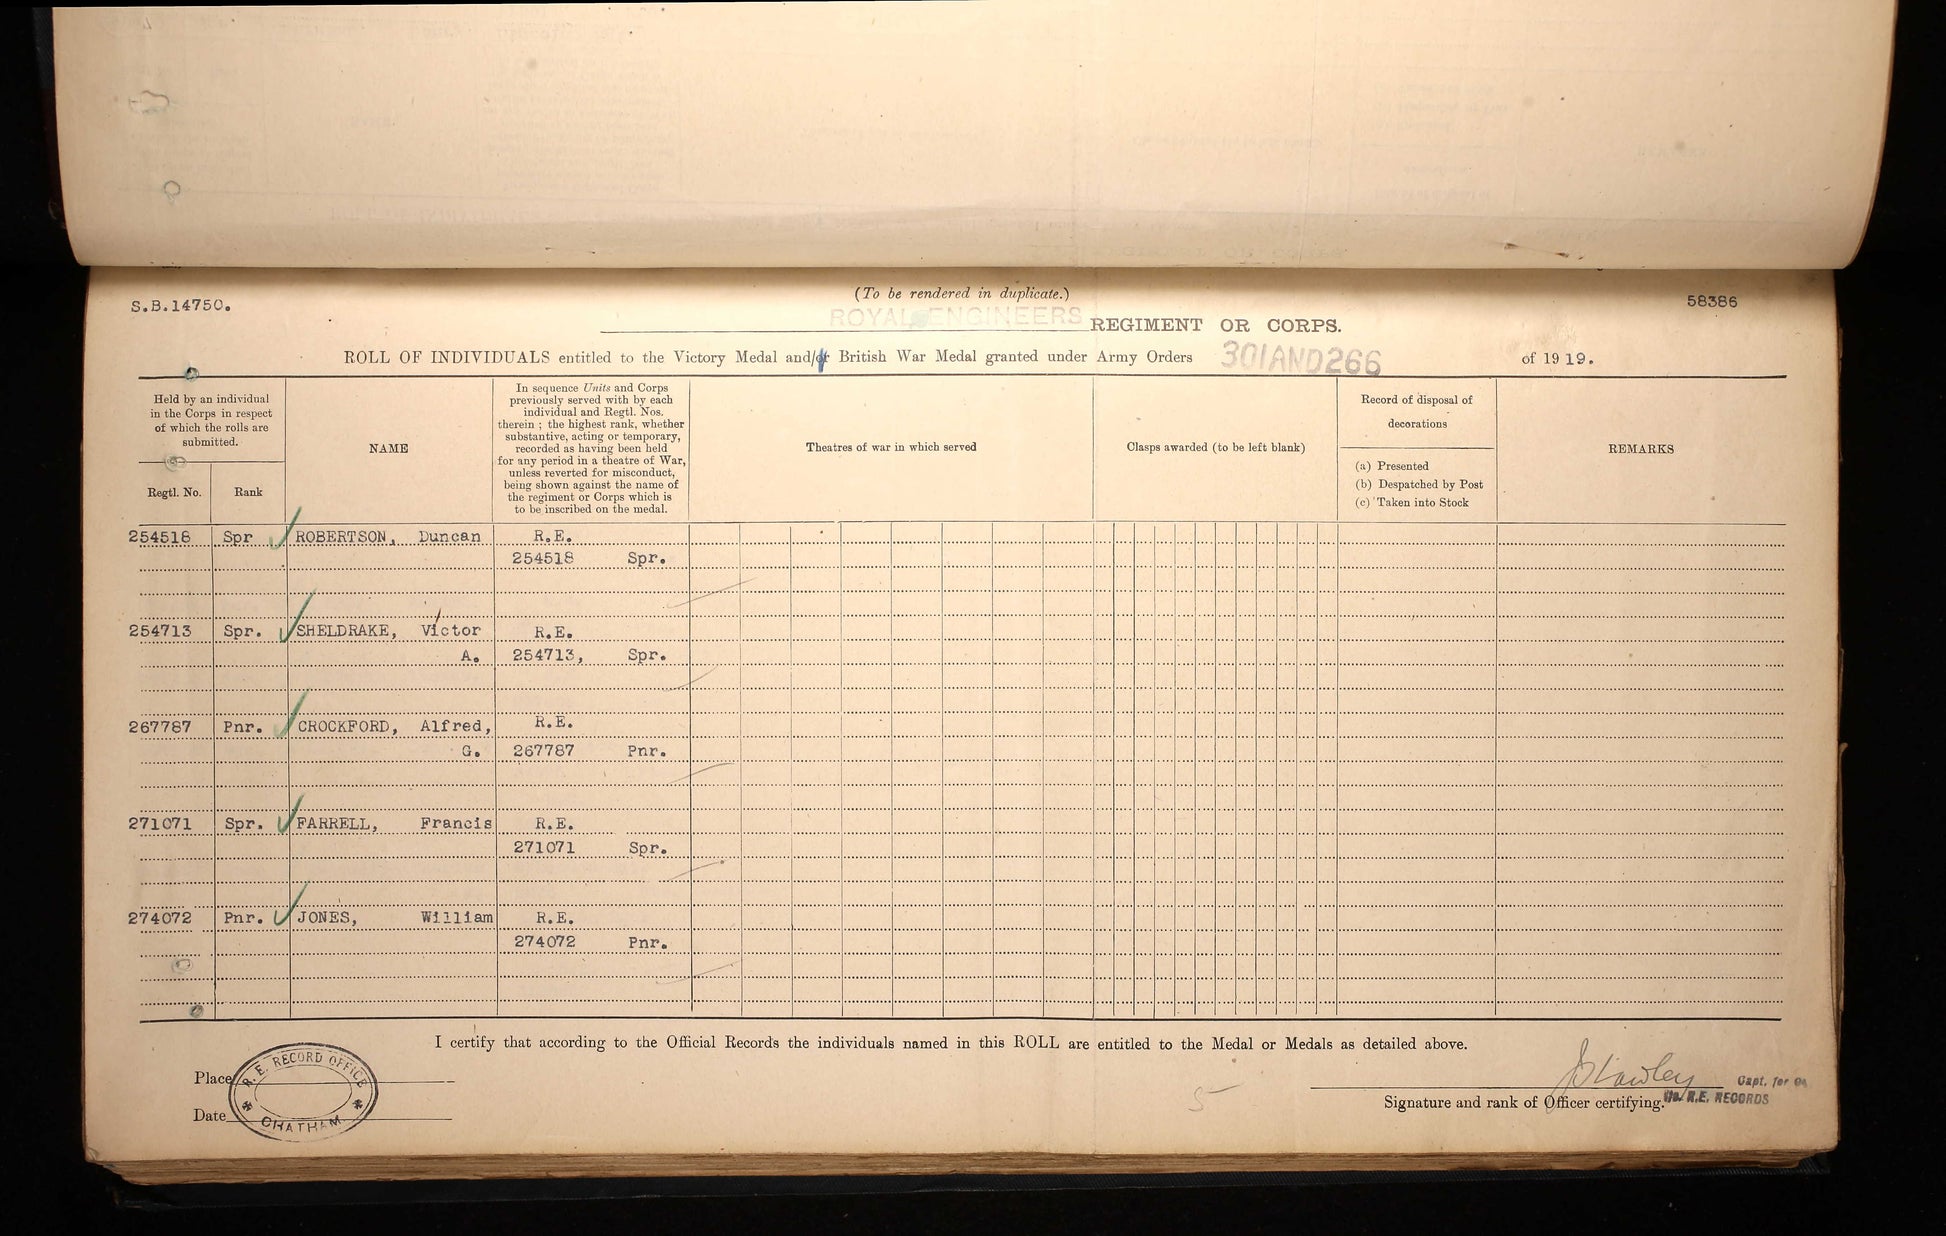 S.B.14750.
(To be rendered in duplicate.)
58386
ROYAL ENGINEERS REGIMENT OR CORPS.
ROLL OF INDIVIDUALS entitled to the Victory Medal and/or British War Medal granted under Army Orders 301AND266 of 1919.
Held by an individual
in the Corps in respect
of which the rolls are
submitted.
Regtl. No.
Rank
NAME
In sequence Units and Corps
previously served with by each
individual and Regtl. Nos.
therein ; the highest rank, whether
substantive, acting or temporary,
recorded as having been held
for any period in a theatre of War,
unless reverted for misconduct,
being shown against the name of
the regiment or Corps which is
to be inscribed on the medal.
Theatres of war in which served
Clasps awarded (to be left blank)
Record of disposal of
decorations
(a) Presented
(b) Despatched by Post
(c) Taken into Stock
REMARKS
254518 Spr ROBERTSON, Duncan R.E.
254518 Spr.
254713 Spr. SHELDRAKE, Victor R.E.
A. 254713, Spr.
267787 Pnr. CROCKFORD, Alfred, R.E.
G. 267787 Pnr.
271071 Spr. FARRELL, Francis R.E.
271071 Spr.
274072 Pnr. JONES, William R.E.
274072 Pnr.
I certify that according to the Official Records the individuals named in this ROLL are entitled to the Medal or Medals as detailed above.
Place
Date
R. E. RECORD OFFICE
CHATHAM
5
Capt. for
Signature and rank of Officer certifying.
R.E. RECORDS